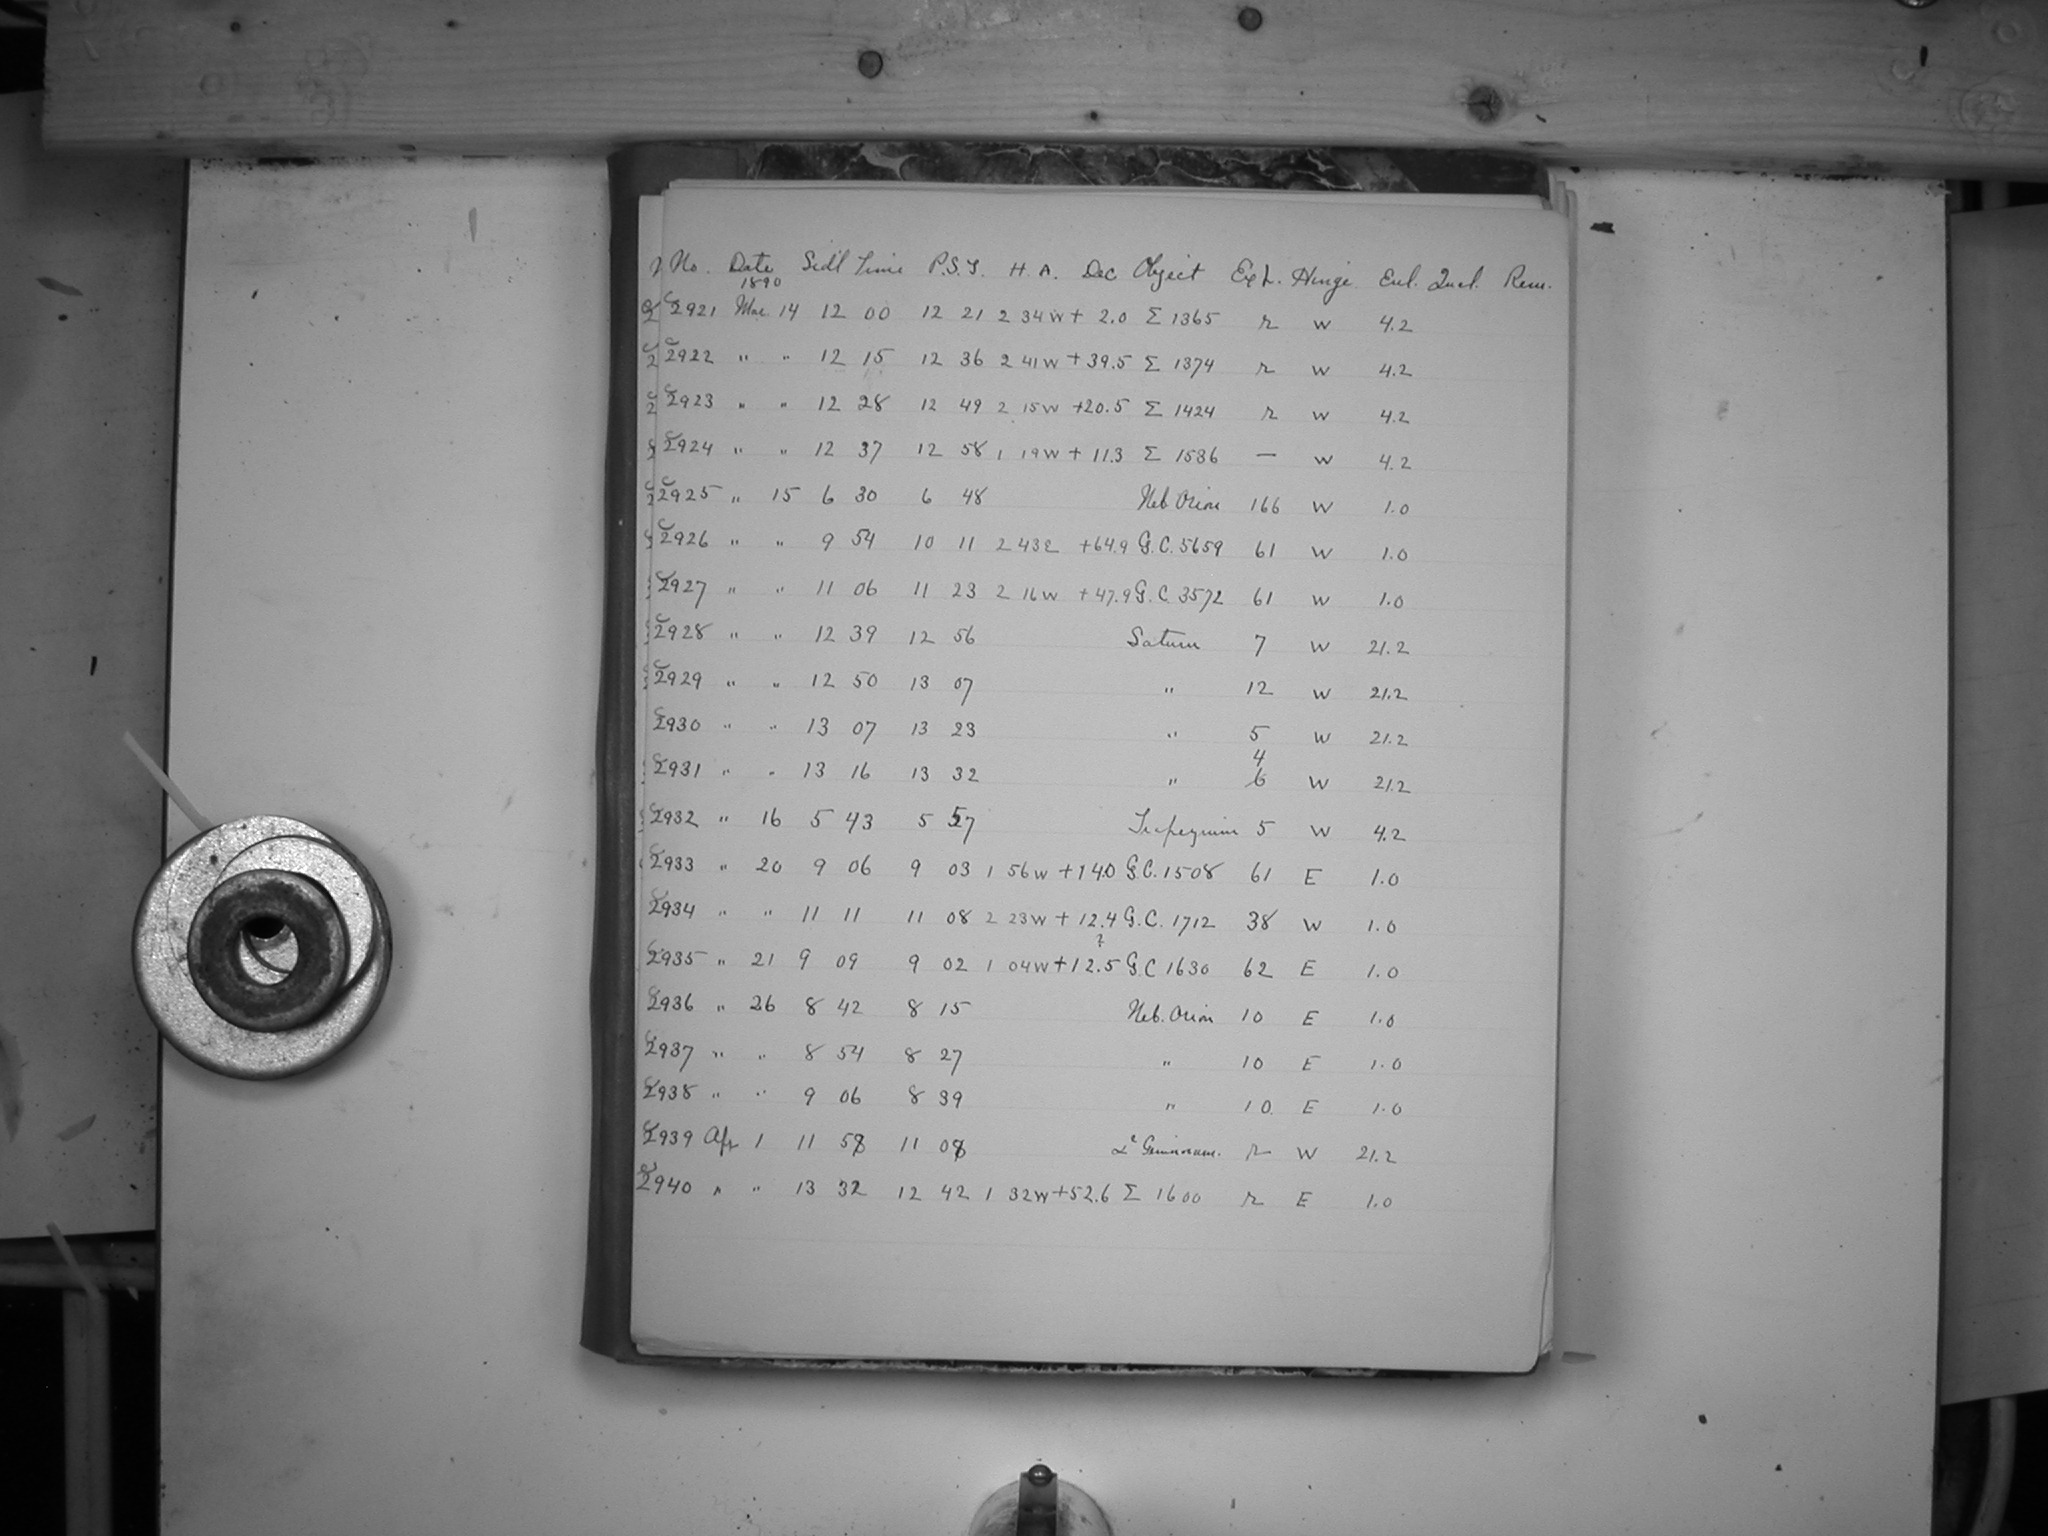 No. Date Sidl Time P.S.T. H. A. Dec Object Ex L. Hinge Enl. Qual. Rem.
1890
C2921 Mar 14 12 00 12 21 2 34 W + 2.0 Σ 1365 r W 4.2
C2922 " " 12 15 12 36 2 41 W + 39.5 Σ 1374 r W 4.2
C2923 " " 12 28 12 49 2 15 W +20.5 Σ 1424 r W 4.2
C2924 " " 12 37 12 58 1 19 W + 11.3 Σ 1536 — W 4.2
C2925 " 15 6 30 6 48 Neb. Orion 166 W 1.0
C2926 " " 9 54 10 11 2 43 E +64.9 G.C. 5659 61 W 1.0
C2927 " " 11 06 11 23 2 16 W + 47.9 G.C. 3572 61 W 1.0
C2928 " " 12 39 12 56 Saturn 7 W 21.2
C2929 " " 12 50 13 07 " 12 W 21.2
C2930 " " 13 07 13 23 " 5 W 21.2
4
C2931 " " 13 16 13 32 " 6 W 21.2
C2932 " 16 5 43 5 57 Trapezium 5 W 4.2
C2933 " 20 9 06 9 03 1 56 W + 14.0 G.C. 1508 61 E 1.0
C2934 " " 11 11 11 08 2 23 W + 12.4 G.C. 1712 38 W 1.0
?
C2935 " 21 9 09 9 02 1 04 W + 12.5 G.C 1630 62 E 1.0
C2936 " 26 8 42 8 15 Neb. Orion 10 E 1.0
C2937 " " 8 54 8 27 " 10 E 1.0
C2938 " " 9 06 8 39 " 10. E 1.0
C2939 Apr 1 11 58 11 08 α² Geminorum. r W 21.2
C2940 " " 13 32 12 42 1 32 W +52.6 Σ 1600 r E 1.0